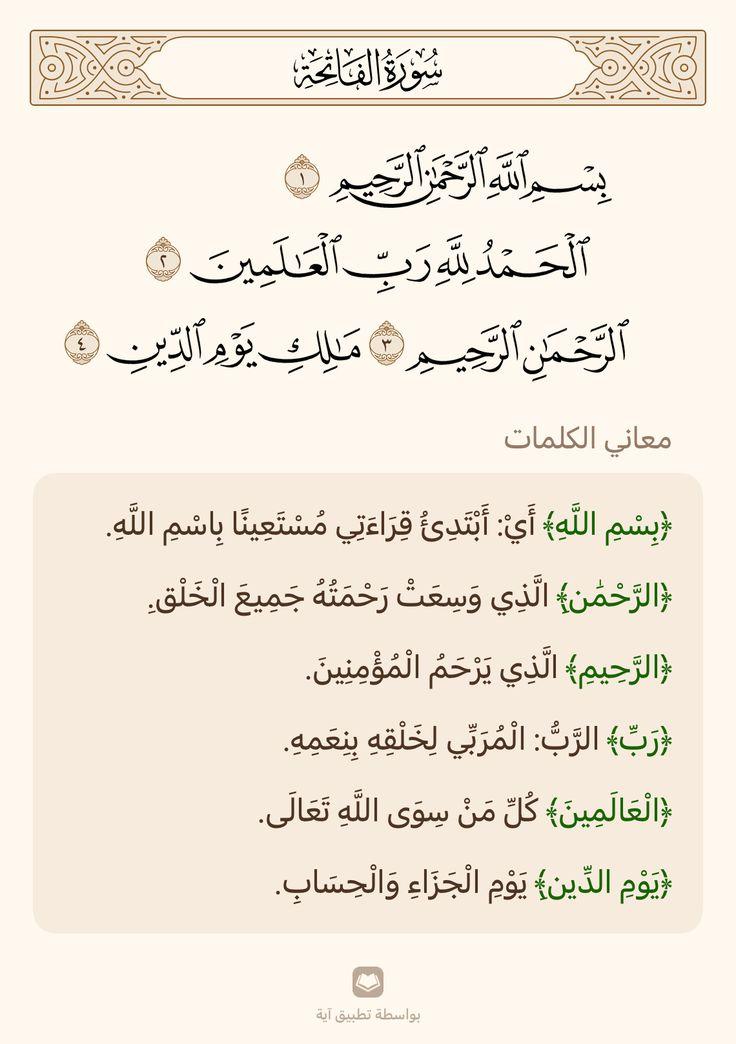 سُورَةُ الفَاتِحَةِ
بِسْمِ ٱللَّهِ ٱلرَّحْمَٰنِ ٱلرَّحِيمِ ١
ٱلْحَمْدُ لِلَّهِ رَبِّ ٱلْعَٰلَمِينَ ٢
ٱلرَّحْمَٰنِ ٱلرَّحِيمِ ٣ مَٰلِكِ يَوْمِ ٱلدِّينِ ٤
معاني الكلمات
﴿بِسْمِ اللَّهِ﴾ أَيْ: أَبْتَدِئُ قِرَاءَتِي مُسْتَعِينًا بِاسْمِ اللَّهِ.
﴿الرَّحْمَٰنِ﴾ الَّذِي وَسِعَتْ رَحْمَتُهُ جَمِيعَ الْخَلْقِ.
﴿الرَّحِيمِ﴾ الَّذِي يَرْحَمُ الْمُؤْمِنِينَ.
﴿رَبِّ﴾ الرَّبُّ: الْمُرَبِّي لِخَلْقِهِ بِنِعَمِهِ.
﴿الْعَالَمِينَ﴾ كُلِّ مَنْ سِوَى اللَّهِ تَعَالَى.
﴿يَوْمِ الدِّينِ﴾ يَوْمِ الْجَزَاءِ وَالْحِسَابِ.
بواسطة تطبيق آية